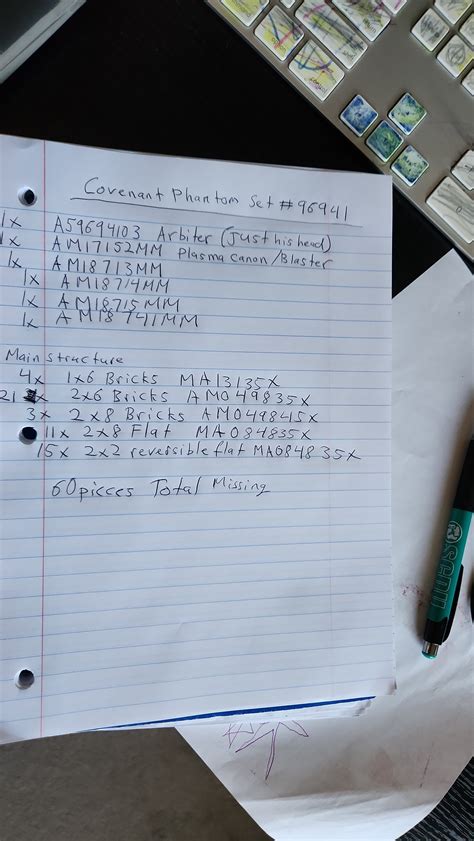 Covenant Phantom Set #96941
1x A59694103 Arbiter (Just his head)
1x AM17152MM Plasma canon/Blaster
1x AM18713MM
1x AM18714MM
1x AM18715MM
1x AM18741MM
Main structure
4x 1x6 Bricks MA13135X
21x 2x6 Bricks AM049835X
3x 2x8 Bricks AM0498415X
11x 2x8 Flat MA084835X
15x 2x2 reversible flat MA084835X
60 pieces Total Missing